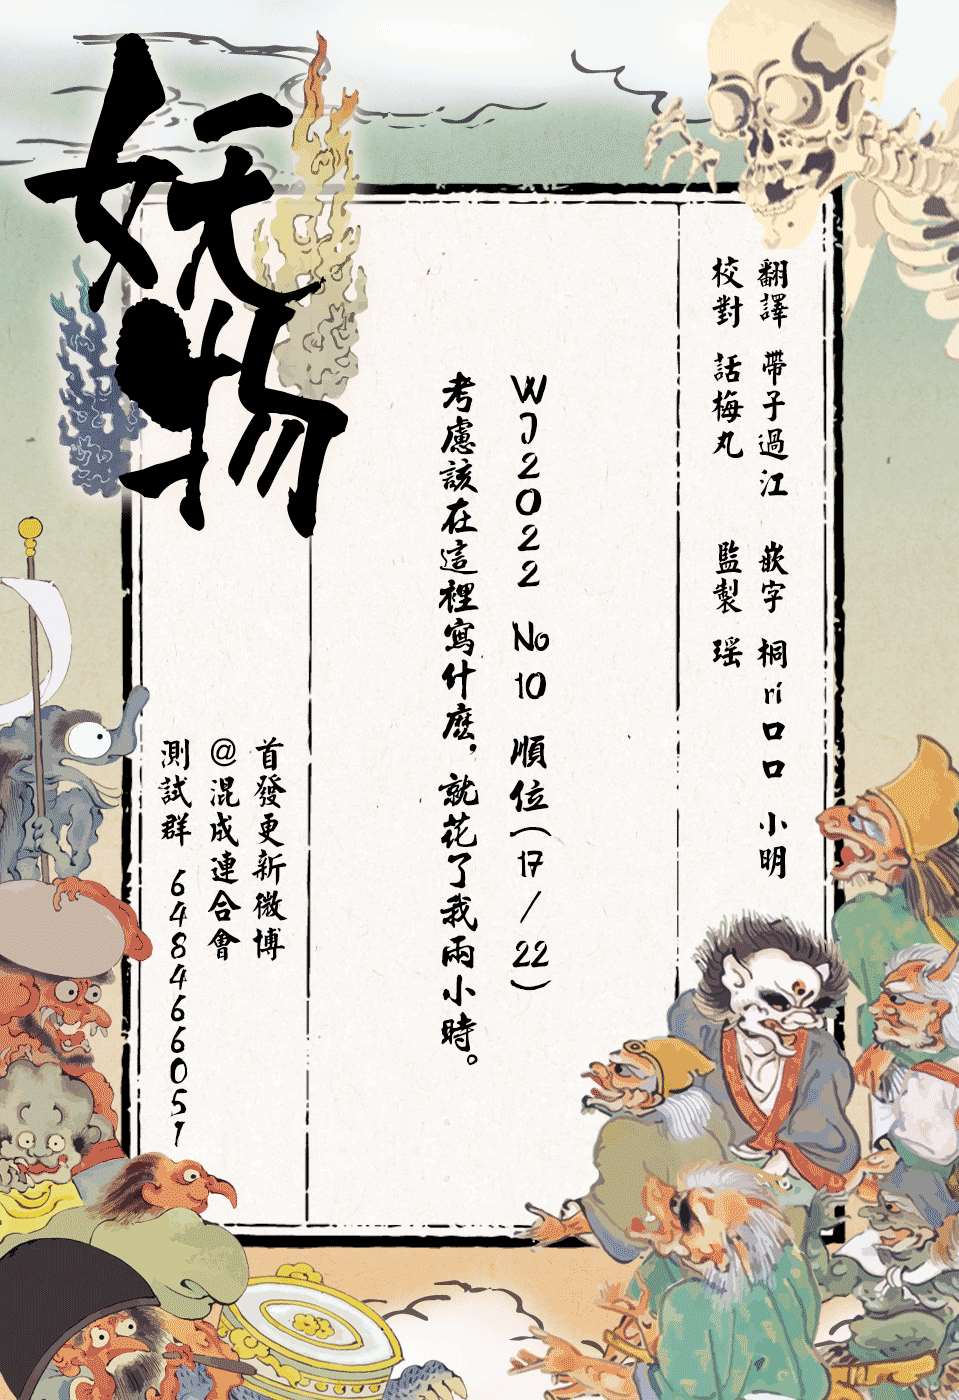 妖物
翻譯 帶子過江 嵌字 桐ri口口 小明
校對 話梅丸 監製 瑶
WJ2022 No10 順位(17/22)
考慮該在這裡寫什麽，就花了我兩小時。
首發更新微博
@混成連合會
測試群 648466051